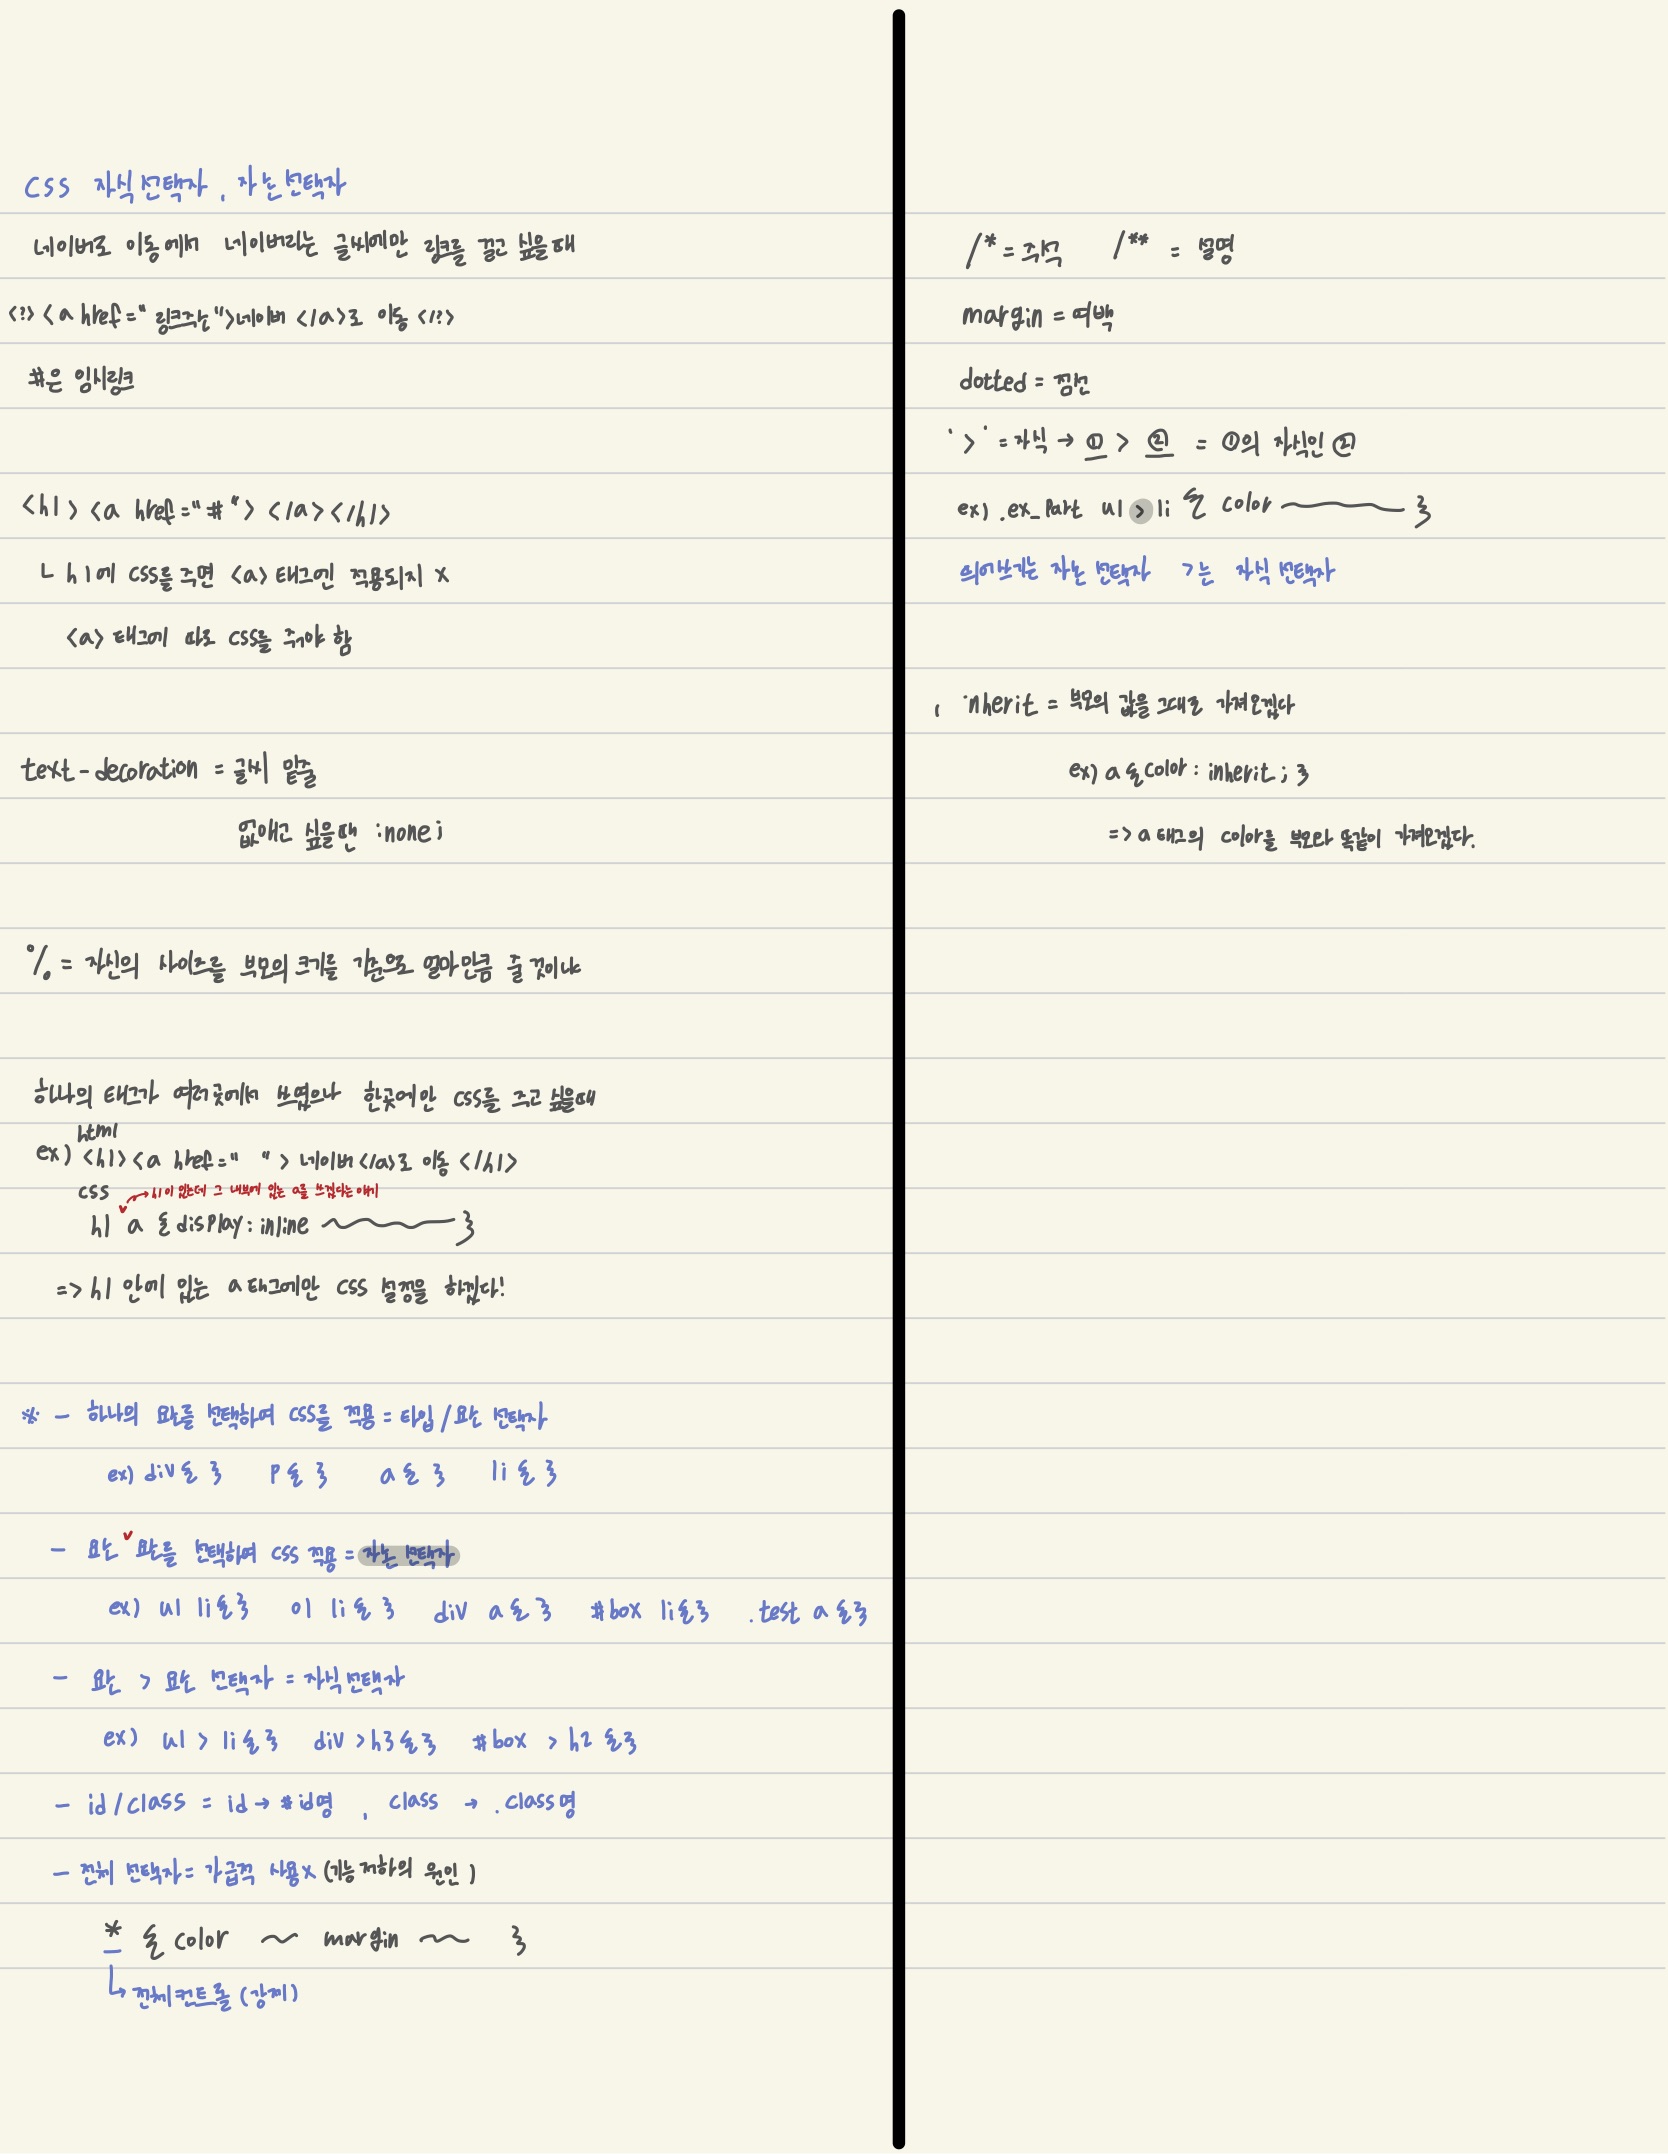 CSS 자식 선택자, 자손 선택자
네이버로 이동에서 네이버라는 글씨에만 링크를 걸고 싶을때
<?> <a href="링크주소">네이버 </a>로 이동 </?>
#은 임시링크
<h1> <a href="#"> </a></h1>
ㄴ h1에 CSS를 주면 <a> 태그엔 적용되지 x
<a> 태그에 따로 CSS를 줘야 함
text-decoration = 글씨 밑줄
없애고 싶을땐 :none;
% = 자신의 사이즈를 부모의 크기를 기준으로 얼마만큼 줄 것이냐
하나의 태그가 여러곳에서 쓰였으나 한곳에만 CSS를 주고 싶을때
html
ex) <h1><a href=" "> 네이버 </a>로 이동 </h1>
css
→ h1이 있는데 그 내부에 있는 a를 쓰겠다는 얘기
h1 ∨ a {display: inline ~ }
=> h1 안에 있는 a 태그에만 CSS 설정을 하겠다!
* - 하나의 요소를 선택하여 CSS를 적용 = 타입/요소 선택자
ex) div{ } p{ } a{ } li{ }
- 요소 ∨ 요소를 선택하여 CSS 적용 = 자손 선택자
ex) ul li{} ol li{ } div a{ } #box li{} .test a{}
- 요소 > 요소 선택자 = 자식 선택자
ex) ul > li{} div >h3{} #box > h2 {}
- id/class = id → #id명, class → .class명
- 전체 선택자 = 가급적 사용x (기능 저하의 원인)
* { color ~ margin ~ }
↳ 전체 컨트롤 (강제)
/* = 주석 /** = 설명
margin = 여백
dotted = 점선
'>' = 자식 → ① > ② = ①의 자식인 ②
ex) .ex_Part ul > li { color ~ }
띄어쓰기는 자손 선택자 >는 자식 선택자
, inherit = 부모의 값을 그대로 가져오겠다
ex) a {color: inherit; }
=> a 태그의 color를 부모와 똑같이 가져오겠다.